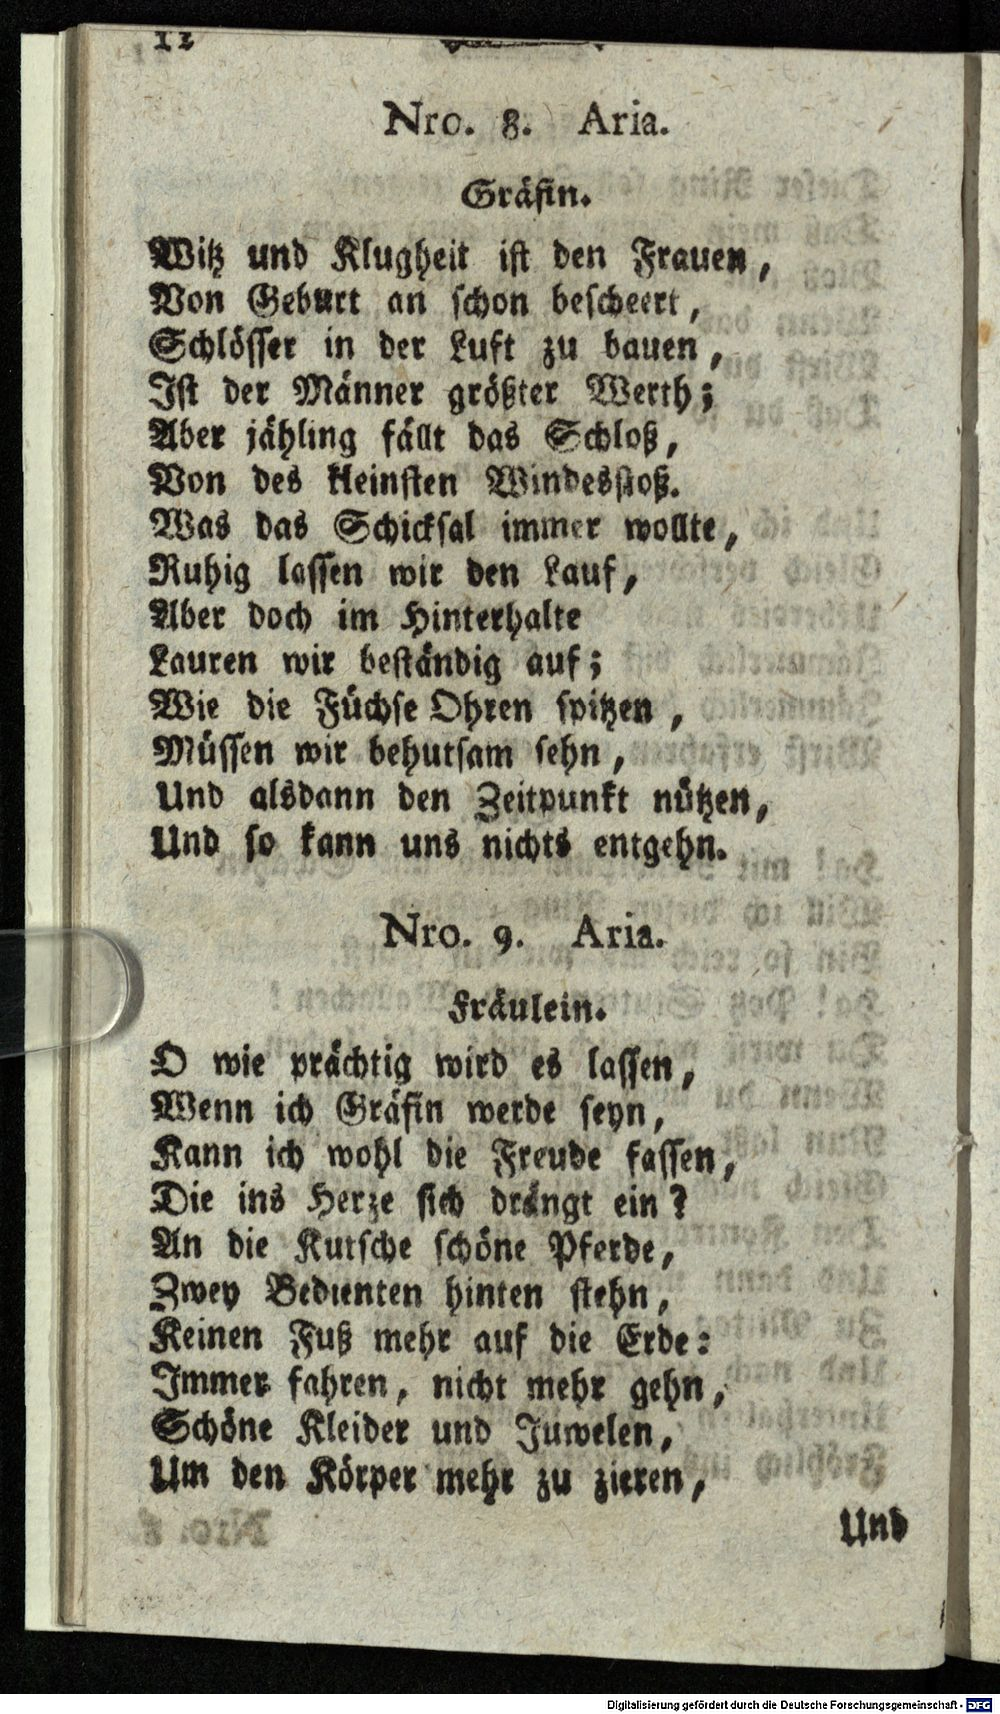 12
Nro. 8. Aria.
Gräfin.
Witz und Klugheit ist den Frauen,
Von Geburt an schon bescheert,
Schlösser in der Luft zu bauen,
Ist der Männer größter Werth;
Aber jähling fällt das Schloß,
Von des kleinsten Windesstoß.
Was das Schicksal immer wollte,
Ruhig lassen wir den Lauf,
Aber doch im Hinterhalte
Lauren wir beständig auf;
Wie die Füchse Ohren spitzen,
Müssen wir behutsam sehn,
Und alsdann den Zeitpunkt nützen,
Und so kann uns nichts entgehn.
Nro. 9. Aria.
Fräulein.
O wie prächtig wird es lassen,
Wenn ich Gräfin werde seyn,
Kann ich wohl die Freude fassen,
Die ins Herze sich drängt ein?
An die Kutsche schöne Pferde,
Zwey Bedienten hinten stehn,
Keinen Fuß mehr auf die Erde:
Immer fahren, nicht mehr gehn,
Schöne Kleider und Juwelen,
Um den Körper mehr zu zieren,
Und
Digitalisierung gefördert durch die Deutsche Forschungsgemeinschaft - DFG